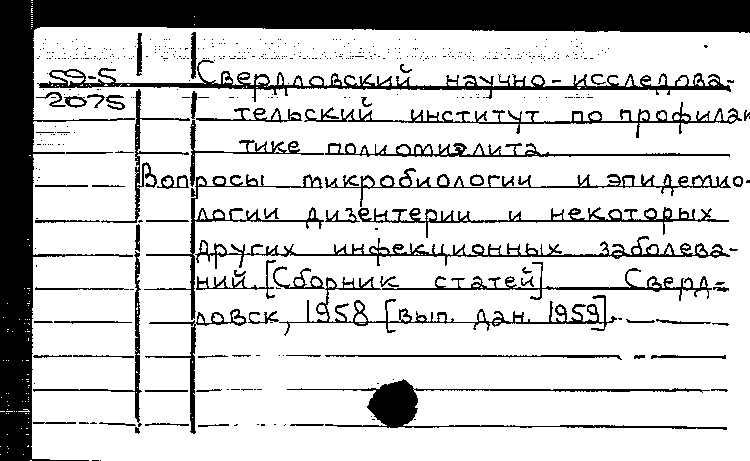 59-5 Свердловский научно-исследова-
2075 тельский институт по профилак
тике полиомиэлита.
Вопросы микробиологии и эпидемио-
логии дизентерии и некоторых
других инфекционных заболева-
ний. [Сборник статей]. Сверд-
ловск, 1958 [вып. дан. 1959].